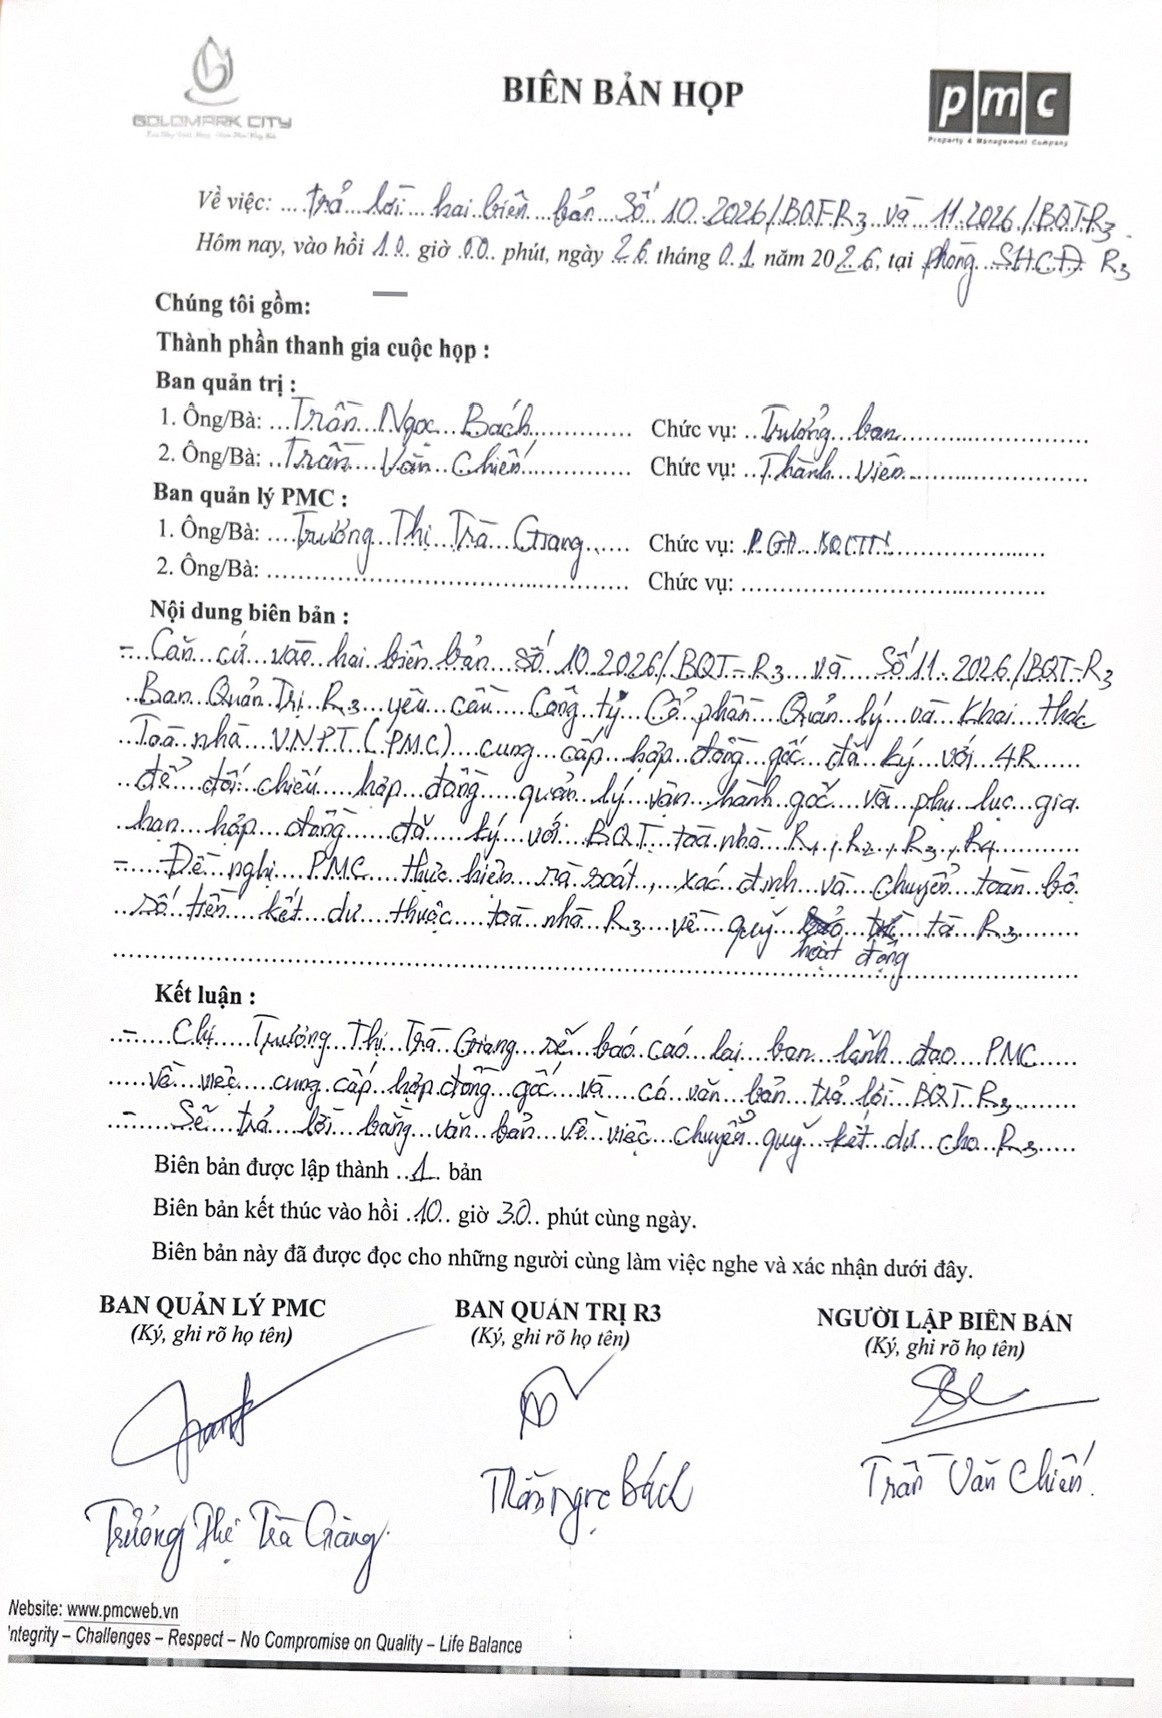 GOLDMARK CITY
BIÊN BẢN HỌP
pmc
Property & Management Company
Về việc: trả lời hai biên bản Số 10.2026/BQT-R3 và 11.2026/BQT-R3.
Hôm nay, vào hồi 10 giờ 00 phút, ngày 26 tháng 01 năm 2026, tại phòng SHCĐ R3
Chúng tôi gồm:
Thành phần thanh gia cuộc họp :
Ban quản trị :
1. Ông/Bà: Trần Ngọc Bách Chức vụ: Trưởng ban
2. Ông/Bà: Trần Văn Chiến Chức vụ: Thành Viên
Ban quản lý PMC :
1. Ông/Bà: Trương Thị Trà Giang Chức vụ: P.GĐ
2. Ông/Bà: Chức vụ:
Nội dung biên bản :
- Căn cứ vào hai biên bản số 10.2026/BQT-R3 và Số 11.2026/BQT-R3
Ban Quản Trị R3 yêu cầu Công ty Cổ phần Quản lý và Khai thác
Toà nhà VNPT (PMC) cung cấp hợp đồng gốc đã ký với 4R
để đối chiếu hợp đồng quản lý vận hành gốc và phụ lục gia
hạn hợp đồng đã ký với BQT toà nhà R1, R2, R3, R4
- Đề nghị PMC thực hiện rà soát, xác định và chuyển toàn bộ
số tiền kết dư thuộc toà nhà R3 về quỹ hoạt động tà R3
Kết luận :
- Chị Trương Thị Trà Giang sẽ báo cáo lại ban lãnh đạo PMC
về việc cung cấp hợp đồng gốc và có văn bản trả lời BQT R3
- Sẽ trả lời bằng văn bản về việc chuyển quỹ kết dư cho R3
Biên bản được lập thành 1 bản
Biên bản kết thúc vào hồi 10 giờ 30 phút cùng ngày.
Biên bản này đã được đọc cho những người cùng làm việc nghe và xác nhận dưới đây.
BAN QUẢN LÝ PMC BAN QUẢN TRỊ R3 NGƯỜI LẬP BIÊN BẢN
(Ký, ghi rõ họ tên) (Ký, ghi rõ họ tên) (Ký, ghi rõ họ tên)
Trương Thị Trà Giang Trần Ngọc Bách Trần Văn Chiến
Website: www.pmcweb.vn
Integrity – Challenges – Respect – No Compromise on Quality – Life Balance